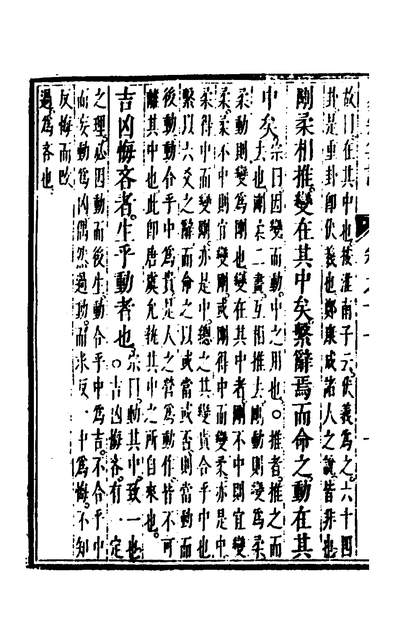 故曰在其中也後淮南子云伏羲爲之六十四
卦是重卦即伏羲也鄭康成諸人之說皆非也
剛柔相推變在其中矣繫辭焉而命之動在其
中矣宗曰因變而動中之用也○推者推之而
去也剛柔二畫互相推去剛動則變爲柔
柔動則變爲剛也變在其中者剛不中則宜變
柔柔不中則宜變剛或剛得中而變柔亦是中
柔得中而變剛亦是中總之其變貴合乎中也
繫以六爻之辭而命之以或當或否則當動而
後動動合乎中爲貴是人之營爲動作皆不可
離其中也此即唐虞允執其中之所自來也
吉凶悔吝者生乎動者也宗曰動其中致一也
○吉凶悔吝有一定
之理必因動而後生動合乎中爲吉不合乎中
而妄動爲凶偶然過動而求反 中爲悔不知
反悔而
過爲吝也